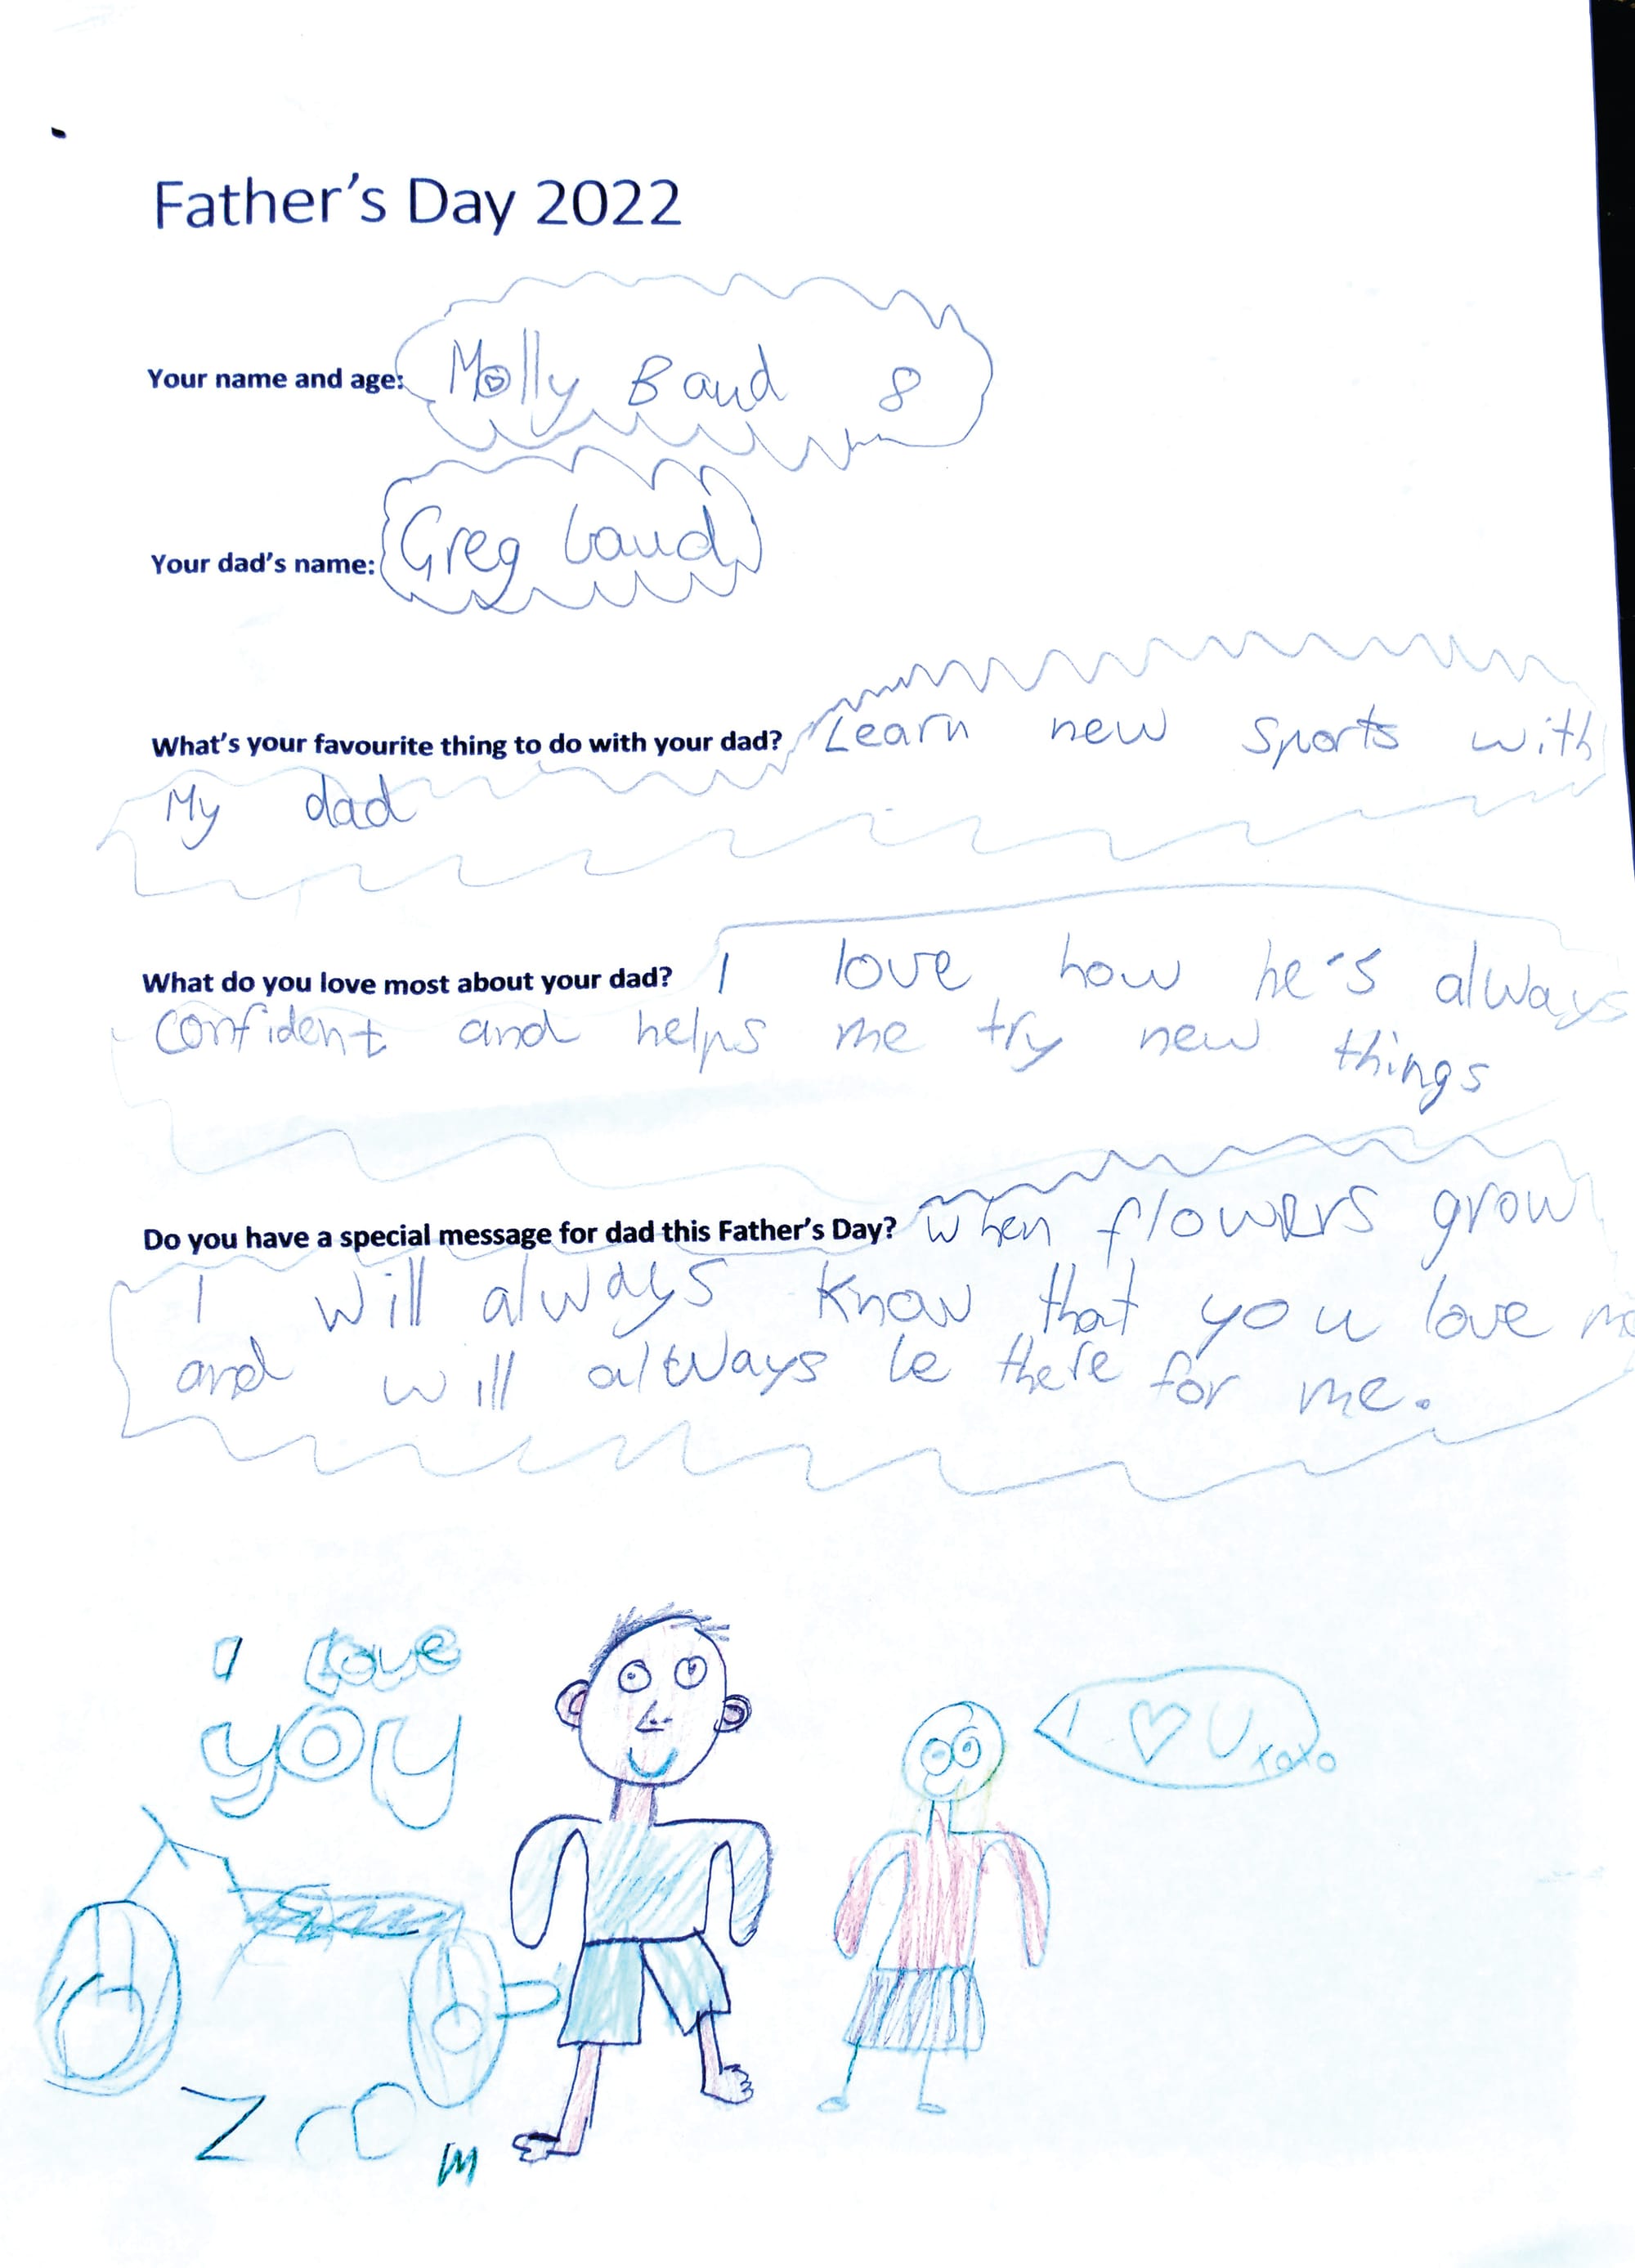 Father's Day 2022
Your name and age: Molly Baud 8
Your dad's name: Greg baud
What's your favourite thing to do with your dad? Learn new sports with
My dad
What do you love most about your dad? I love how he's always
confident and helps me try new things
Do you have a special message for dad this Father's Day? when flowers grow
I will always know that you love me
and will always be there for me.
I love
you
I ♡ U xoxo
Zoom